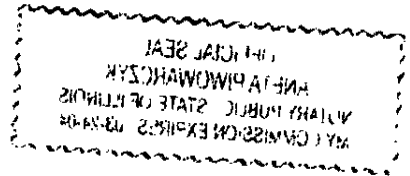 OFFICIAL SEAL
ANETA PIWOWARCZYK
NOTARY PUBLIC STATE OF ILLINOIS
MY COMMISSION EXPIRES 03-24-04